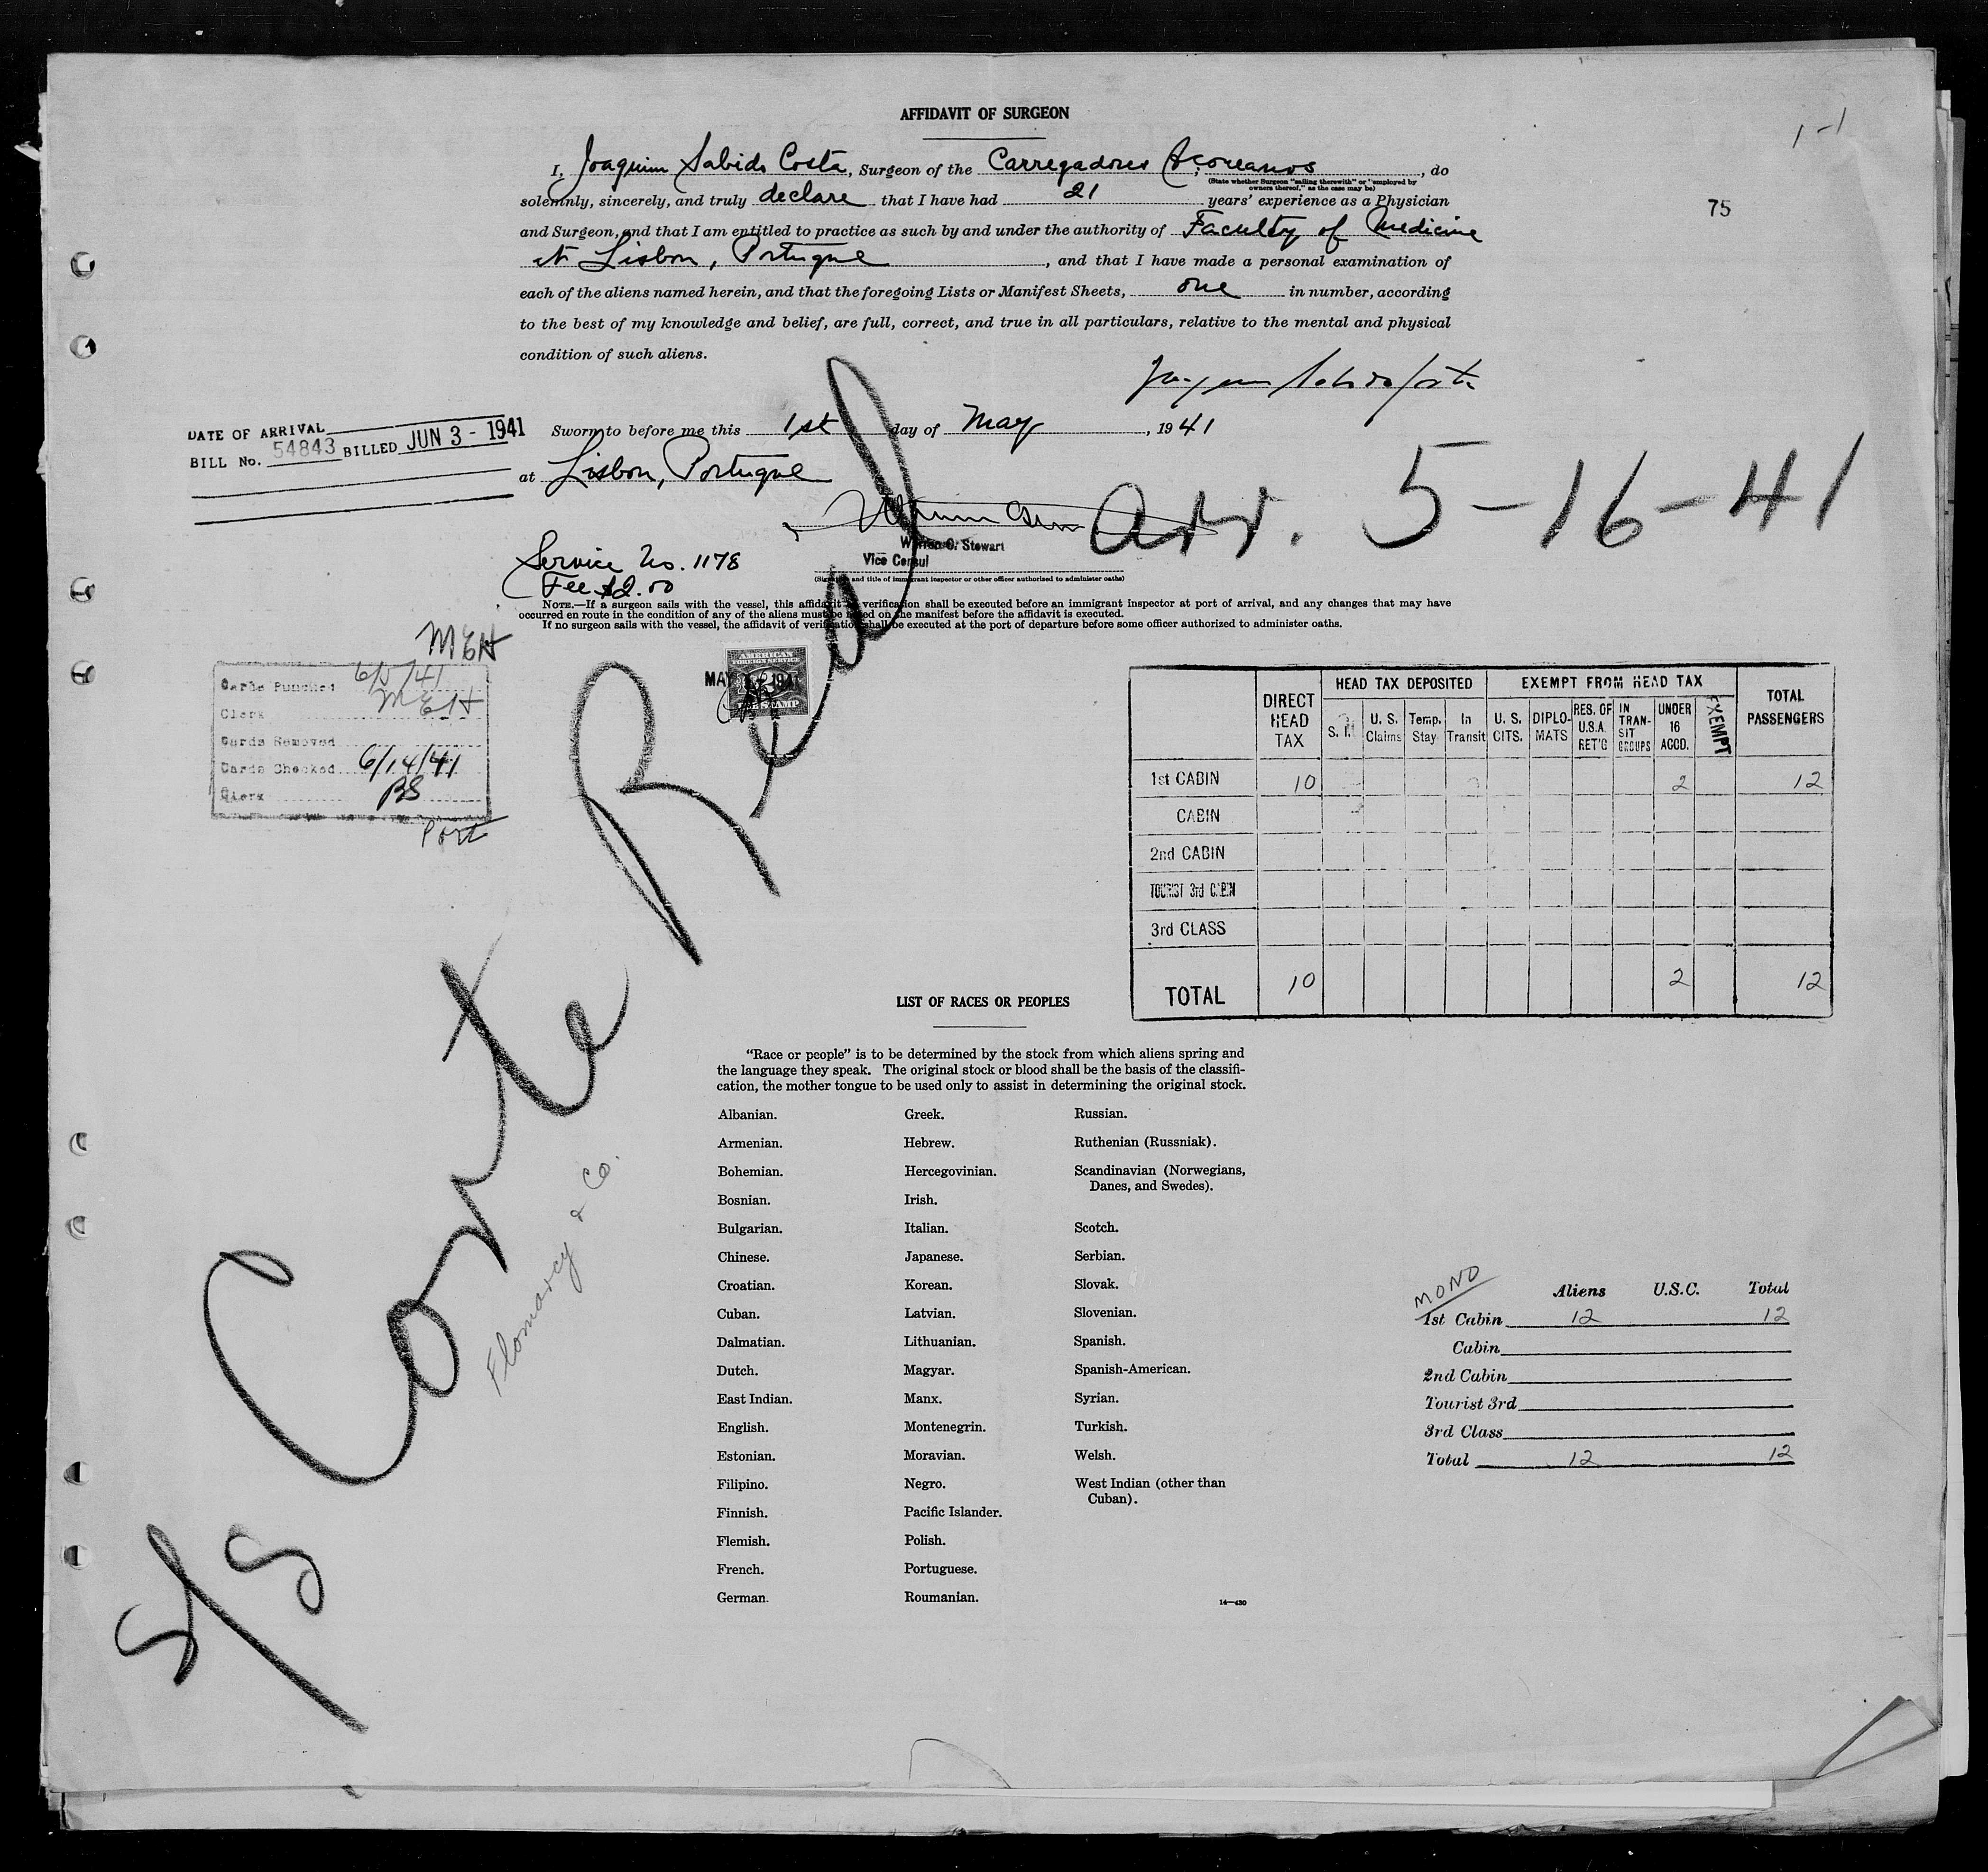 AFFIDAVIT OF SURGEON
1-1
I, Joaquim Sabido Costa, Surgeon of the Carregadores Açoreanos, do
(State whether Surgeon "sailing therewith" or "employed by
owners thereof," as the case may be)
solemnly, sincerely, and truly declare that I have had 21 years' experience as a Physician
75
and Surgeon, and that I am entitled to practice as such by and under the authority of Faculty of Medicine
at Lisbon, Portugal, and that I have made a personal examination of
each of the aliens named herein, and that the foregoing Lists or Manifest Sheets, one in number, according
to the best of my knowledge and belief, are full, correct, and true in all particulars, relative to the mental and physical
condition of such aliens.
DATE OF ARRIVAL
BILL No. 54843 BILLED JUN 3 - 1941
Sworn to before me this 1st day of May, 1941
at Lisbon, Portugal
Arr. 5-16-41
Warren C. Stewart
Vice Consul
(Signature and title of immigrant inspector or other officer authorized to administer oaths)
Service No. 1178
Fee $2.00
NOTE.—If a surgeon sails with the vessel, this affidavit of verification shall be executed before an immigrant inspector at port of arrival, and any changes that may have
occurred en route in the condition of any of the aliens must be noted on the manifest before the affidavit is executed.
If no surgeon sails with the vessel, the affidavit of verification shall be executed at the port of departure before some officer authorized to administer oaths.
MEH
Cards Punched 6/5/41
Clerk MEH
Cards Removed
Cards Checked 6/14/41
Clerk BS
Port
AMERICAN
FOREIGN SERVICE
MAY 1941
FEE STAMP
S/S Corte Real
Flomarcy & Co.
DIRECT HEAD TAX
HEAD TAX DEPOSITED
EXEMPT FROM HEAD TAX
TOTAL PASSENGERS
U. S. Claims Temp. Stay In Transit U. S. CITS. DIPLO-MATS RES. OF U.S.A. RET'G IN TRAN-SIT GROUPS UNDER 16 ACCD. EXEMPT
1st CABIN 10 2 12
CABIN
2nd CABIN
TOURIST 3rd CABIN
3rd CLASS
TOTAL 10 2 12
LIST OF RACES OR PEOPLES
"Race or people" is to be determined by the stock from which aliens spring and
the language they speak. The original stock or blood shall be the basis of the classifi-
cation, the mother tongue to be used only to assist in determining the original stock.
Albanian.
Armenian.
Bohemian.
Bosnian.
Bulgarian.
Chinese.
Croatian.
Cuban.
Dalmatian.
Dutch.
East Indian.
English.
Estonian.
Filipino.
Finnish.
Flemish.
French.
German.
Greek.
Hebrew.
Hercegovinian.
Irish.
Italian.
Japanese.
Korean.
Latvian.
Lithuanian.
Magyar.
Manx.
Montenegrin.
Moravian.
Negro.
Pacific Islander.
Polish.
Portuguese.
Roumanian.
Russian.
Ruthenian (Russniak).
Scandinavian (Norwegians,
Danes, and Swedes).
Scotch.
Serbian.
Slovak.
Slovenian.
Spanish.
Spanish-American.
Syrian.
Turkish.
Welsh.
West Indian (other than
Cuban).
14—430
MONO
Aliens U.S.C. Total
1st Cabin 12 12
Cabin
2nd Cabin
Tourist 3rd
3rd Class
Total 12 12